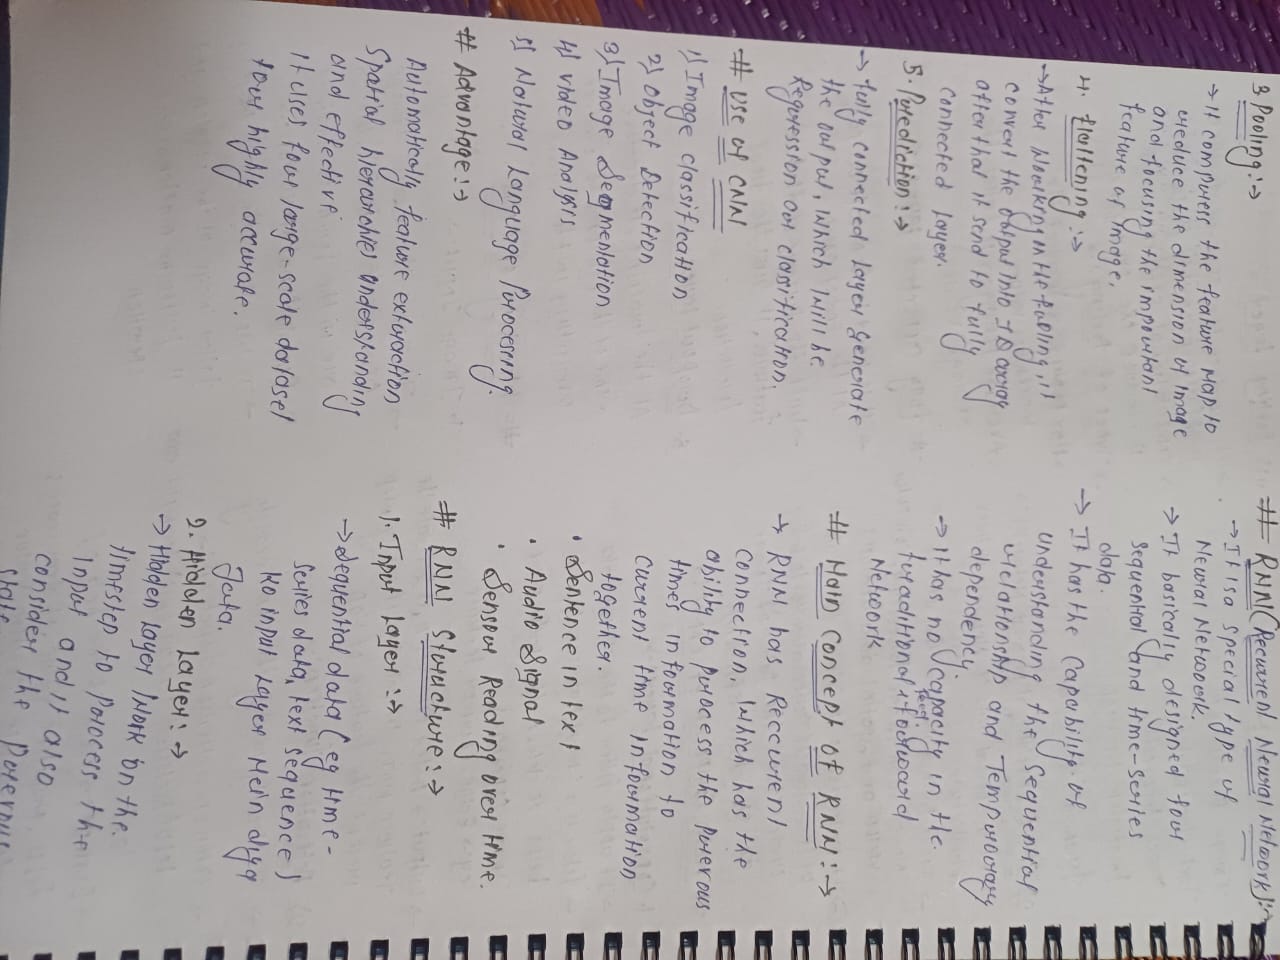 3. Pooling :→
→ It compress the feature map to
reduce the dimension of image
and focusing the important
feature of image.
4. flattening :→
→ After working in the pulling it
convert the output into 1D array
after that it send to fully
connected layer.
5. Prediction :→
→ fully connected layer generate
the output, which will be
Regression or classification.
# Use of CNN
1) Image classification
2) object Detection
3) Image Segmentation
4) video Analysis
5) Natural Language Processing.
# Advantage :→
Automatically feature extraction
Spatial hierarchies understanding
and effective
It uses for large-scale dataset
for highly accurate.
# RNN (Recurrent Neural Network) :→
→ It is a special type of
Neural Network.
→ It basically designed for
sequential and time-series
data.
→ It has the capability of
understanding the sequential
relationship and Temporary
dependency.
→ It has no capacity in the
traditional feed forward
Network
# Main Concept of RNN :→
→ RNN has Reccurent
connection, which has the
ability to process the previous
times information to
current time information
together.
• Sentence in text
• Audio Signal
• Sensor Reading over time.
# RNN Structure :→
1. Input Layer :→
→ Sequential data (eg time-
series data, text sequence)
ko input layer mein dya
Jata.
2. Hidden Layer :→
→ Hidden layer work on the
timestep to process the
input and it also
consider the previous
state